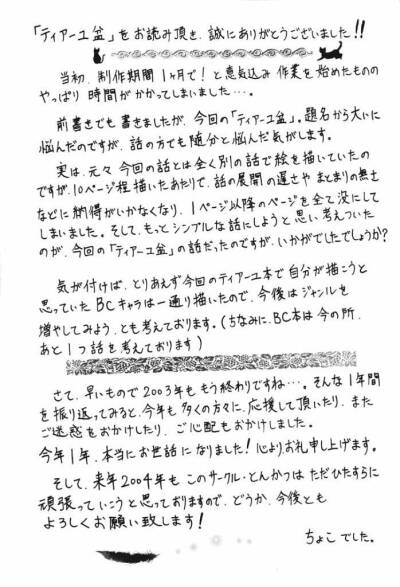 「ティアーユ盆」をお読み頂き、誠にありがとうございました!!
当初、制作期間1ヶ月で!と意気込み作業を始めたものの
やっぱり時間がかかってしまいました…。
前書きでも書きましたが、今回の「ティアーユ盆」。題名から大いに
悩んだのですが、話の方でも随分と悩んだ気がします。
実は、元々今回の話とは全く別の話で絵を描いていたの
ですが、10ページ程描いたあたりで、話の展開の遅さやまとまりの無さ
などに納得がいかなくなり、1ページ以降のページを全て没にして
しまいました。そして、もっとシンプルな話にしようと思い、考えついた
のが、今回の「ティアーユ盆」の話だったのですが、いかがでしたでしょうか?
気が付けば、とりあえず今回のティアーユ本で自分が描こうと
思っていたBCキャラは一通り描いたので、今後はジャンルを
増やしてみよう、とも考えております。(ちなみに、BC本は今の所、
あと1つ話を考えております)
さて、早いもので2003年ももう終わりですね…。そんな1年間
を振り返ってみると、今年も多くの方々に、応援して頂いたり、また
ご迷惑をおかけしたり、ご心配もおかけしました。
今年1年、本当にお世話になりました!心よりお礼申し上げます。
そして、来年2004年もこのサークル・とんかつはただひたすらに
頑張っていこうと思っておりますので、どうか、今後とも
よろしくお願い致します!
ちょこでした。